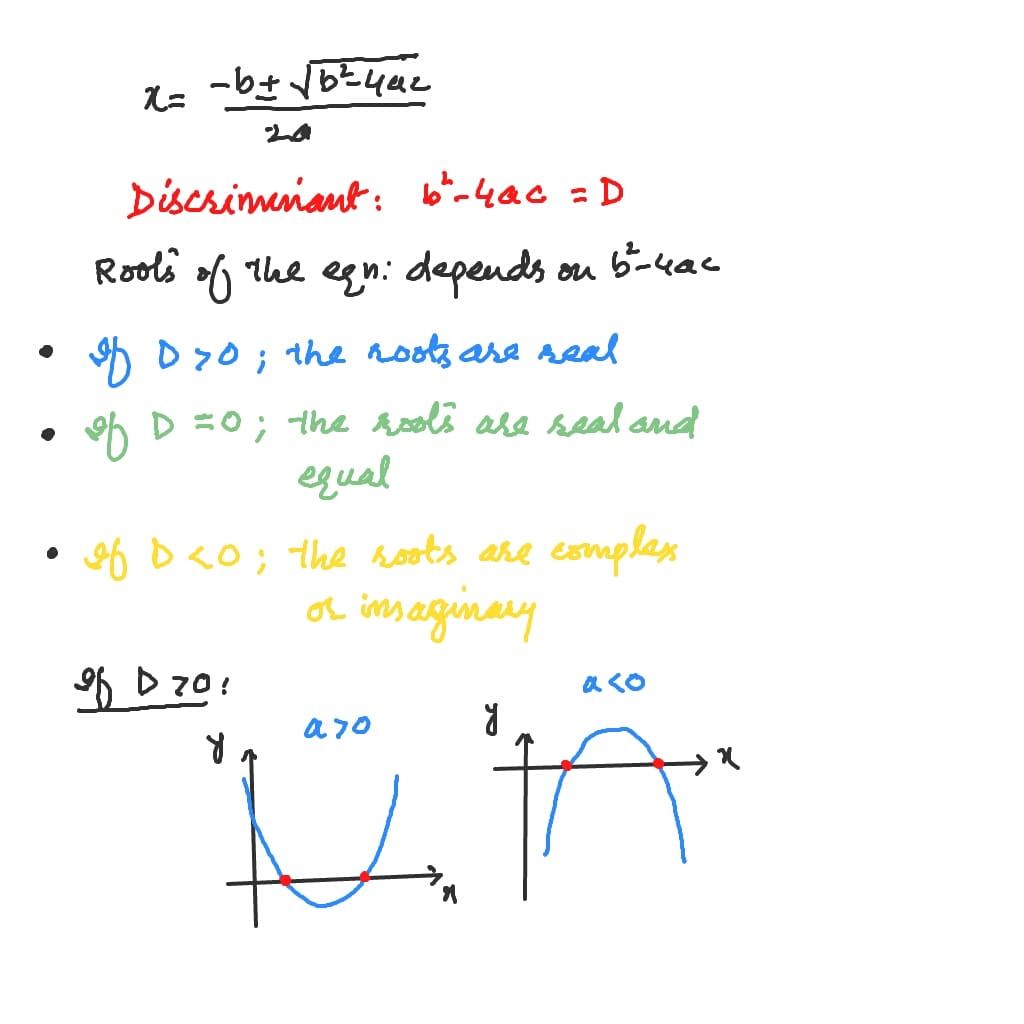 x= -b± √b²-4ac
2a
Discriminant: b²-4ac = D
Roots of the eqn: depends on b²-4ac
• If D >0 ; the roots are real
• If D =0 ; the roots are real and
equal
• If D <0 ; the roots are complex
or imaginary
If D >0:
a<0
a>0
y
y
x
x